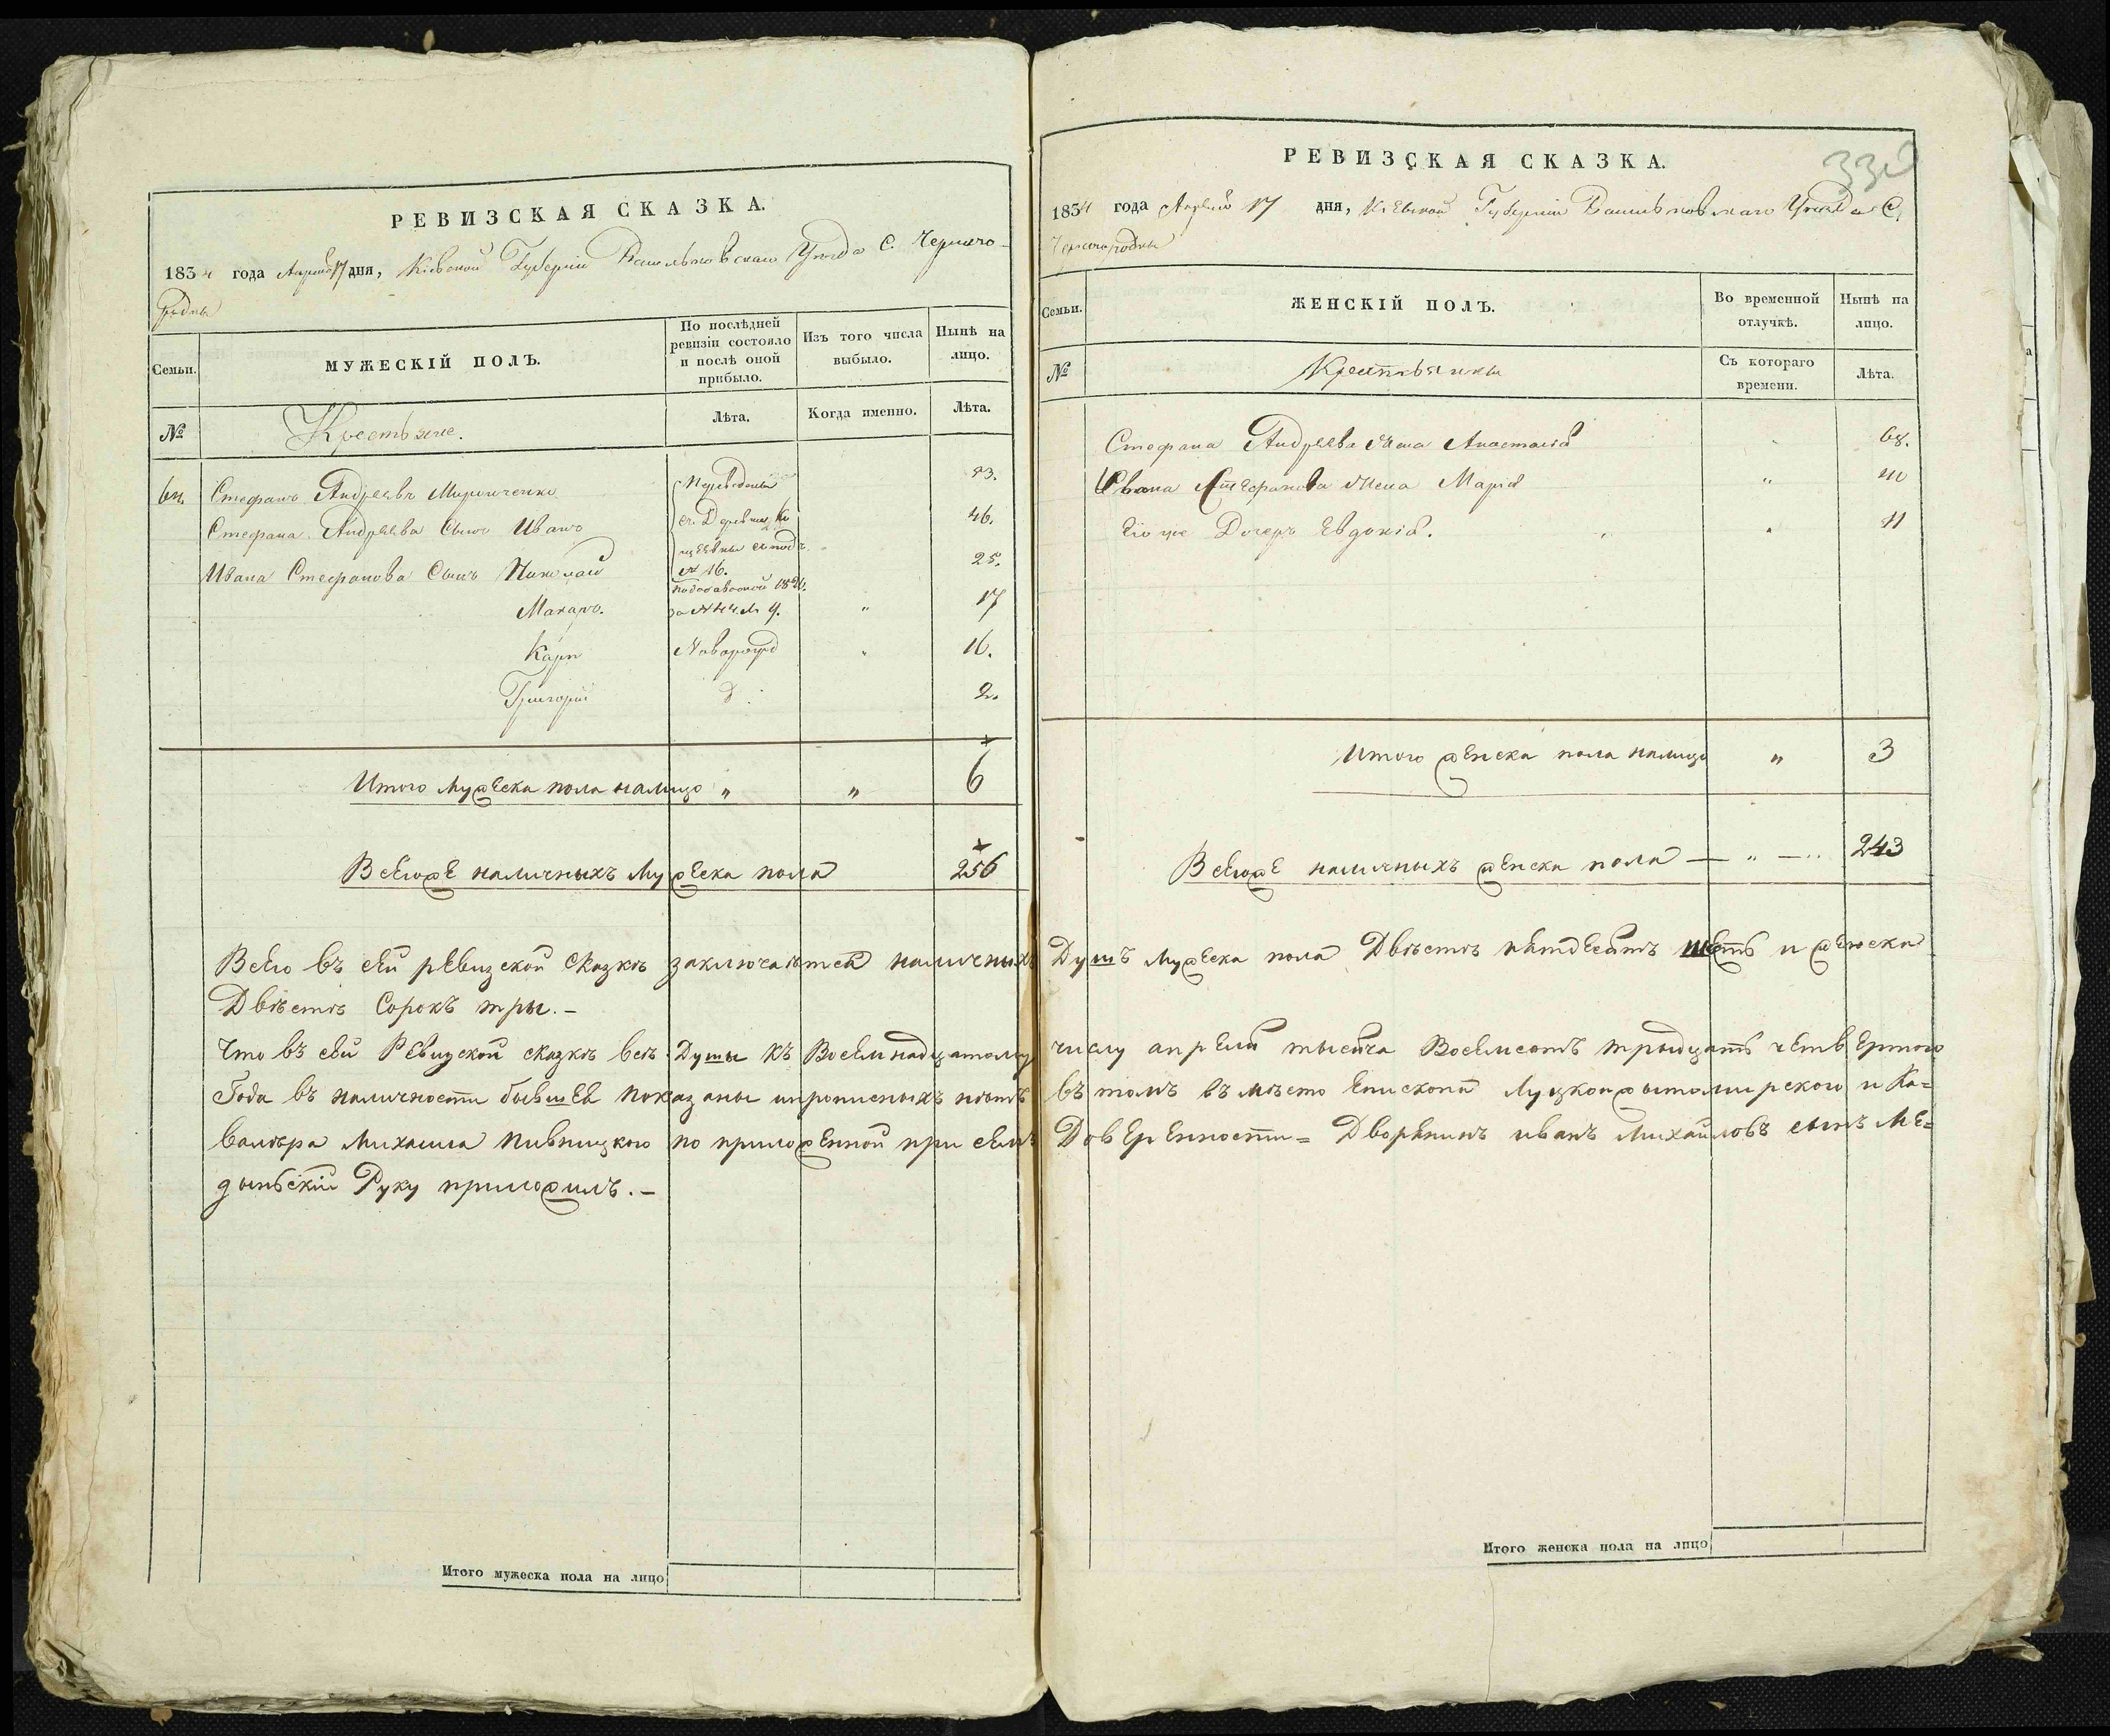 РЕВИЗСКАЯ СКАЗКА.
1834 года Апреля 17 дня, Кіевской Губерніи Васильковскаго Уѣзда С. Черного-
родки
Семьи.
МУЖЕСКІЙ ПОЛЪ.
По послѣдней ревизіи состояло и послѣ оной прибыло.
Изъ того числа выбыло.
Нынѣ на лицо.
№
Крестьяне.
Лѣта.
Когда именно.
Лѣта.
Стефанъ Андреевъ Миронченко
Переведены
Стефана Андреева Сынъ Иванъ
46.
Ивана Стефанова Сынъ Николай
№ 16.
25.
Макаръ.
"
17
Карп
Новорожд
"
16.
Григорій
2.
Итого Мужеска пола налицо " " 6
Всегоже наличныхъ Мужеска пола 256
Всего въ сей ревизской сказкѣ заключается наличныхъ
Двѣстѣ Сорокъ тры.-
Что въ сей Ревизской сказкѣ всѣ Душы къ Восемнадцатому
Года въ наличности бывшея показаны ипрописныхъ нѣтъ
Валѣра Михаила Пивницкого по приложенной при семъ
дыньскій Руку приложилъ.-
Итого мужеска пола на лицо
РЕВИЗСКАЯ СКАЗКА.
1834 года Апреля 17 дня, Кіевской Губерніи Васильковскаго Уѣзда С.
Черногородки
Семьи.
ЖЕНСКІЙ ПОЛЪ.
Во временной отлучкѣ.
Нынѣ на лицо.
№
Крестьянки
Съ котораго времени.
Лѣта.
Стефана Андреева жена Анастасія
68.
Ивана Стефанова жена Марія
"
40
Его же Дочерь Евдокія.
"
11
Итого женска пола налицо " 3
Всегоже наличныхъ женска пола — " — 243
Душъ Мужеска пола Двѣстѣ пятдесятъ шесть и женска
числу апреля тысяча Восемсотъ трыдцать четвертого
въ томъ въ мѣсто Епископа Луцкожытомирского и Ка=
Доверенности= Дворянинъ иванъ Михайловъ сынъ Ме=
Итого женска пола на лицо